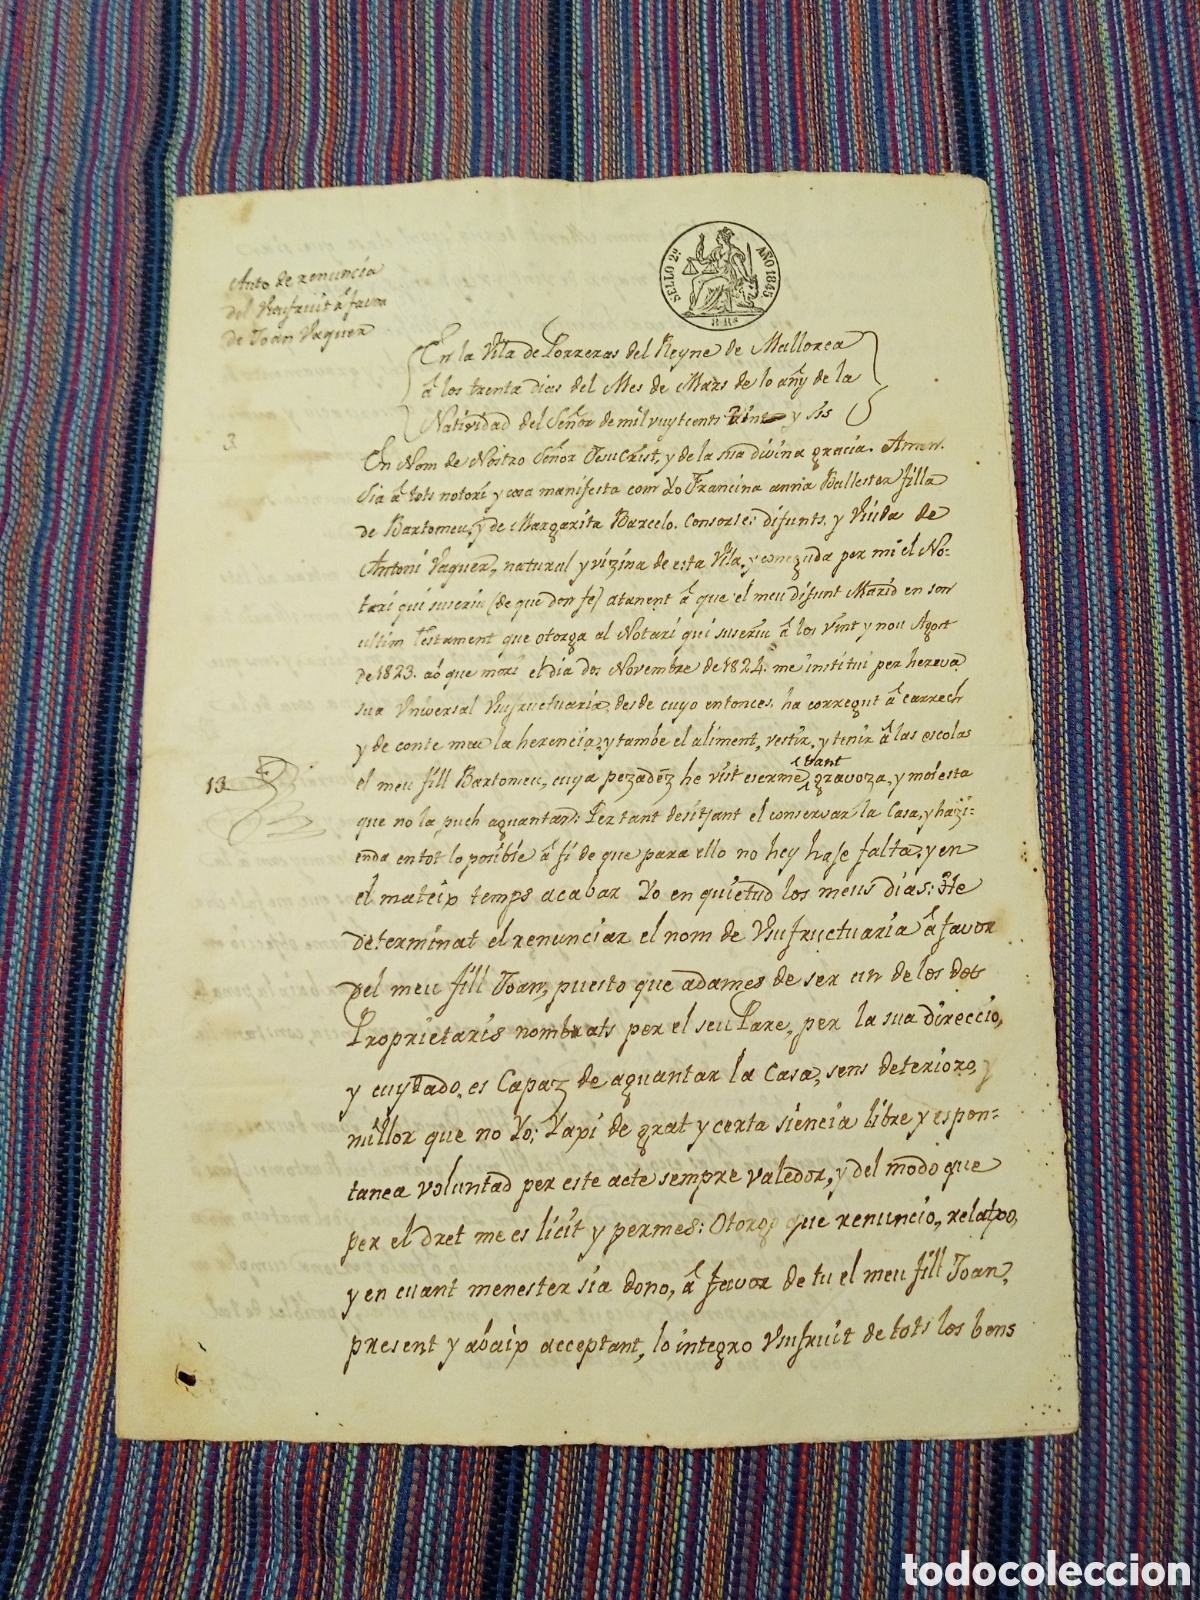 SELLO 2º AÑO 1845
8 Rs
Auto de renuncia
del Usufruit â favor
de Joan Vaquer
En la Vila de Porreras del Reyne de Mallorca
â los trenta dias del Mes de Mars de lo añy de la
Natividad del Señor de mil vuytcents y sis
3
En Nom de Nostro Señor Jesucrist, y de la sua divina gracia. Amen.
Sia â tots notori y cosa manifesta com Yo Francina anna Ballester filla
de Bartomeu, y de Margarita Barcelo. Consortes difunts, y Viuda de
Antoni Vaquer, natural y vizina de esta Vila, y coneguda per mi el No-
tari qui suscriu (de que don fe) atanent â que el meu difunt Marid en son
ultim Testament que otorga al Notari qui suscriu â los vint y nou Agost
de 1823. aó que morí el dia dos Novembre de 1824. me institui per hereva
sua Universal Usufructuaria, desde cuyo entonces ha corregut â carrech
y de conte meu la herencia, y tambe el aliment, vestir, y tenir â las escolas
tant
13
el meu fill Bartomeu, cuya pezadéz he vist eserme gravoza, y molesta
que no la puch aguantar: Pertant desitjant el conservar la Casa, y hazi-
enda en tot lo posible â fi de que para ello no hey hase falta, y en
el mateix temps acabar Yo en quietud los meus dias: He
determinat el renunciar el nom de Usufructuaria â favor
del meu fill Joan, puesto que adames de ser un de los dos
Proprietaris nombrats per el seu Pare, per la sua direccio,
y cuydado, es Capaz de aguantar la Casa, sens deterioro, y
millor que no Yo; Yaxi de grat y certa siencia libre y espon-
tanea voluntad per este acte sempre valedor, y del modo que
per el dret me es licit y permes: Otorg que renuncio, relaxo,
y en cuant menester sia dono, â favor de tu el meu fill Joan,
present y abaix acceptant, lo integro Usufruit de tots los bens
todocoleccion